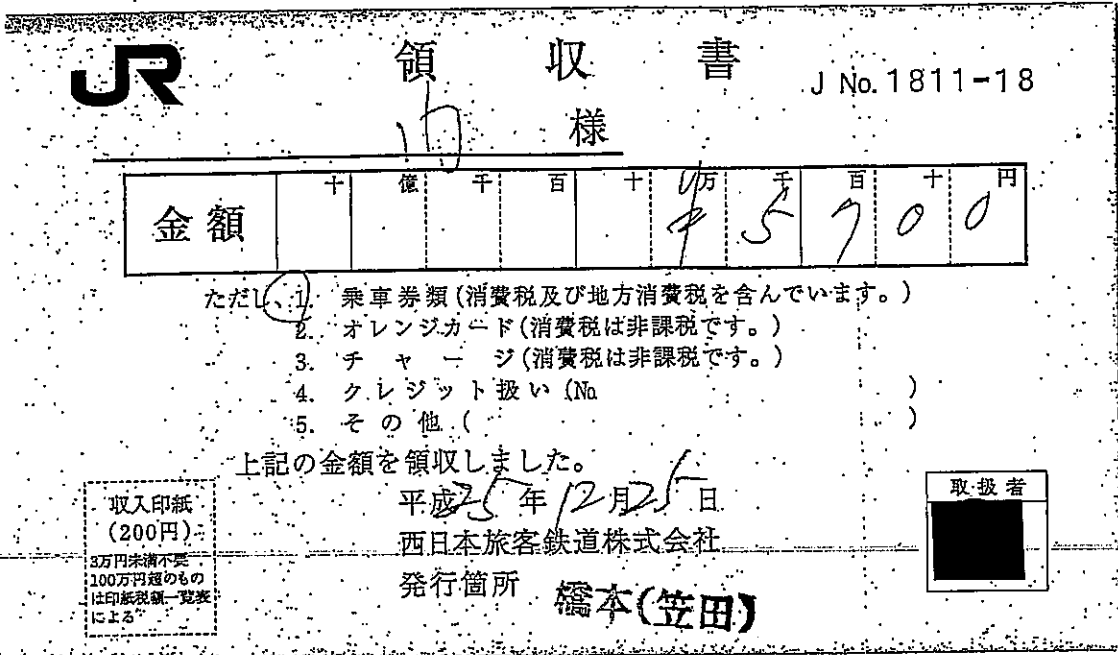 JR 領収書 J No.1811-18
様
十 億 千 百 十 万 千 百 十 円
金額 ¥ 4 5 7 0 0
ただし、1. 乗車券類(消費税及び地方消費税を含んでいます。)
2. オレンジカード(消費税は非課税です。)
3. チャージ(消費税は非課税です。)
4. クレジット扱い(No )
5. その他( )
上記の金額を領収しました。
平成25年12月25日
西日本旅客鉄道株式会社
発行箇所 橋本(笠田)
収入印紙
(200円)
3万円未満不要
100万円超のもの
は印紙税額一覧表
による
取扱者